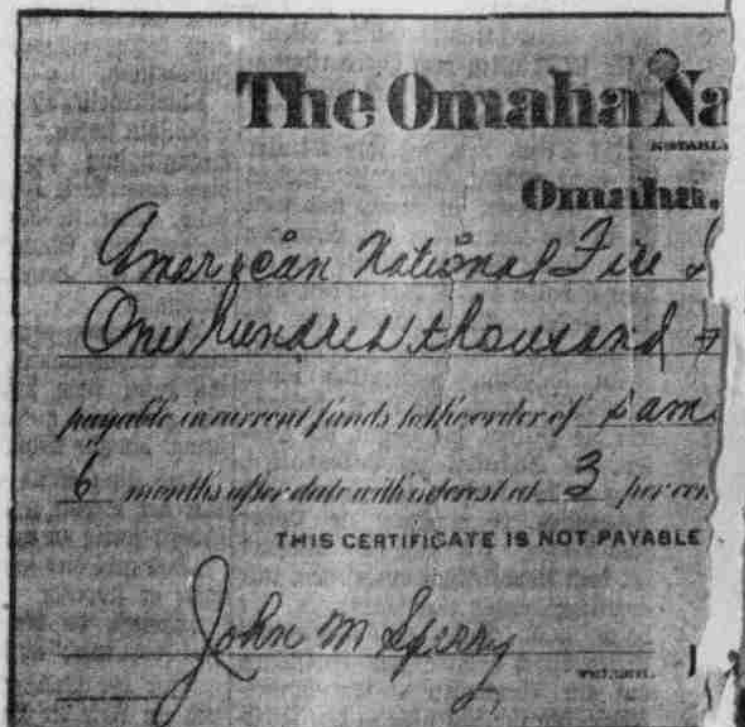 The Omaha Na
Omaha.
American National Fire
One hundred thousand
payable in current funds to the order of same
6 months after date with interest at 3 per cen
THIS CERTIFICATE IS NOT PAYABLE
John M Sperry